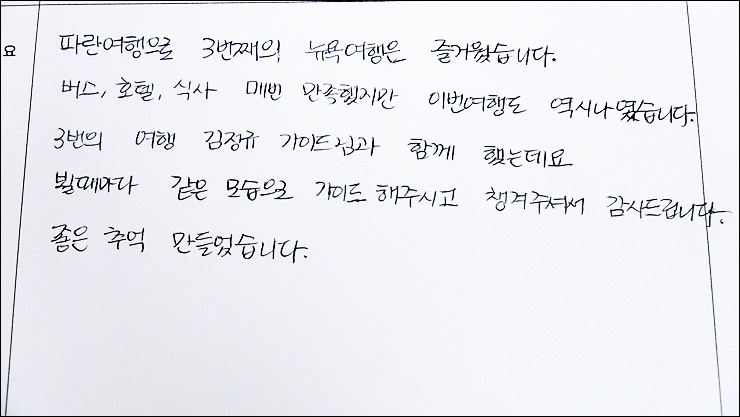 요
파란여행으로 3번째의 뉴욕여행은 즐거웠습니다.
버스, 호텔, 식사 매번 만족했지만 이번여행도 역시나였습니다.
3번의 여행 김정규 가이드님과 함께 했는데요
뵐때마다 같은 모습으로 가이드 해주시고 챙겨주셔서 감사드립니다.
좋은 추억 만들었습니다.